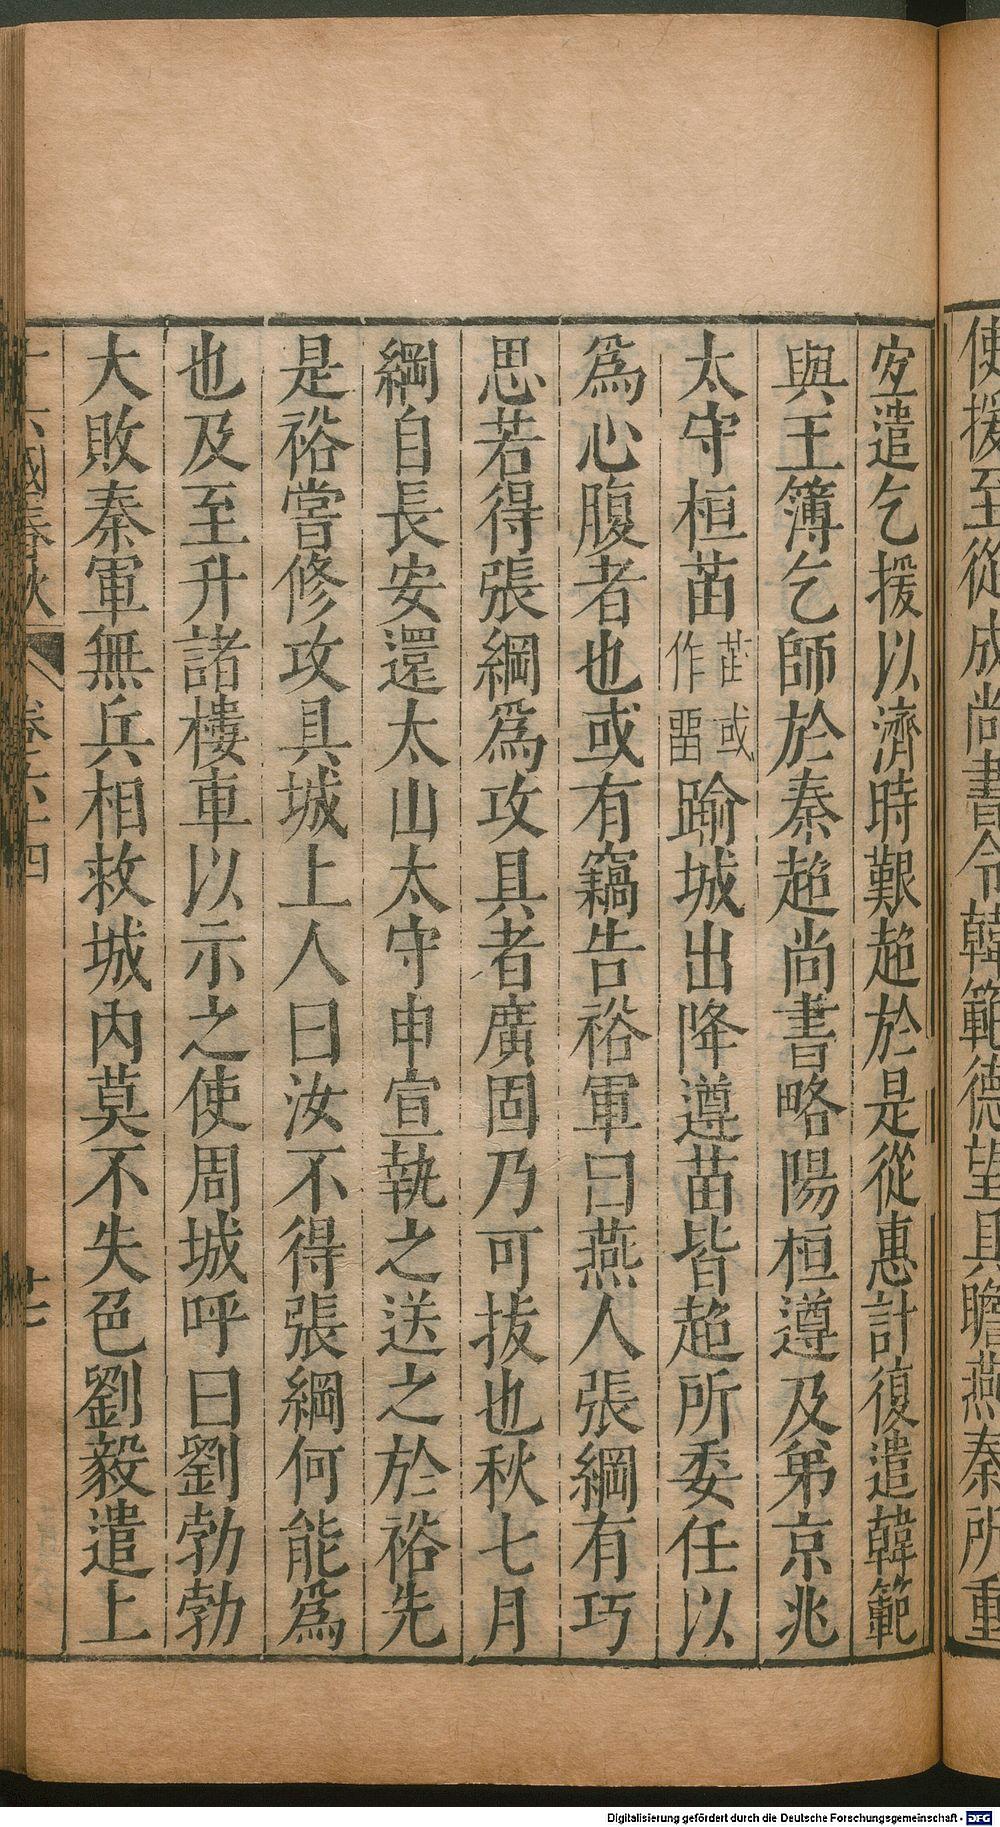 使援至從成尚書令韓範德望具瞻燕秦所重
宜遣乞援以濟時艱超於是從惠計復遣韓範
與王簿乞師於秦超尚書略陽桓遵及弟京兆
太守桓苗苗或作畱踰城出降遵苗皆超所委任以
爲心腹者也或有竊告裕軍曰燕人張綱有巧
思若得張綱爲攻具者廣固乃可拔也秋七月
綱自長安還太山太守申宣執之送之於裕先
是裕嘗修攻具城上人曰汝不得張綱何能爲
也及至升諸樓車以示之使周城呼曰劉勃勃
大敗秦軍無兵相救城內莫不失色劉毅遣上
十六國春秋 卷六十四 廿七
Digitalisierung gefördert durch die Deutsche Forschungsgemeinschaft - DFG